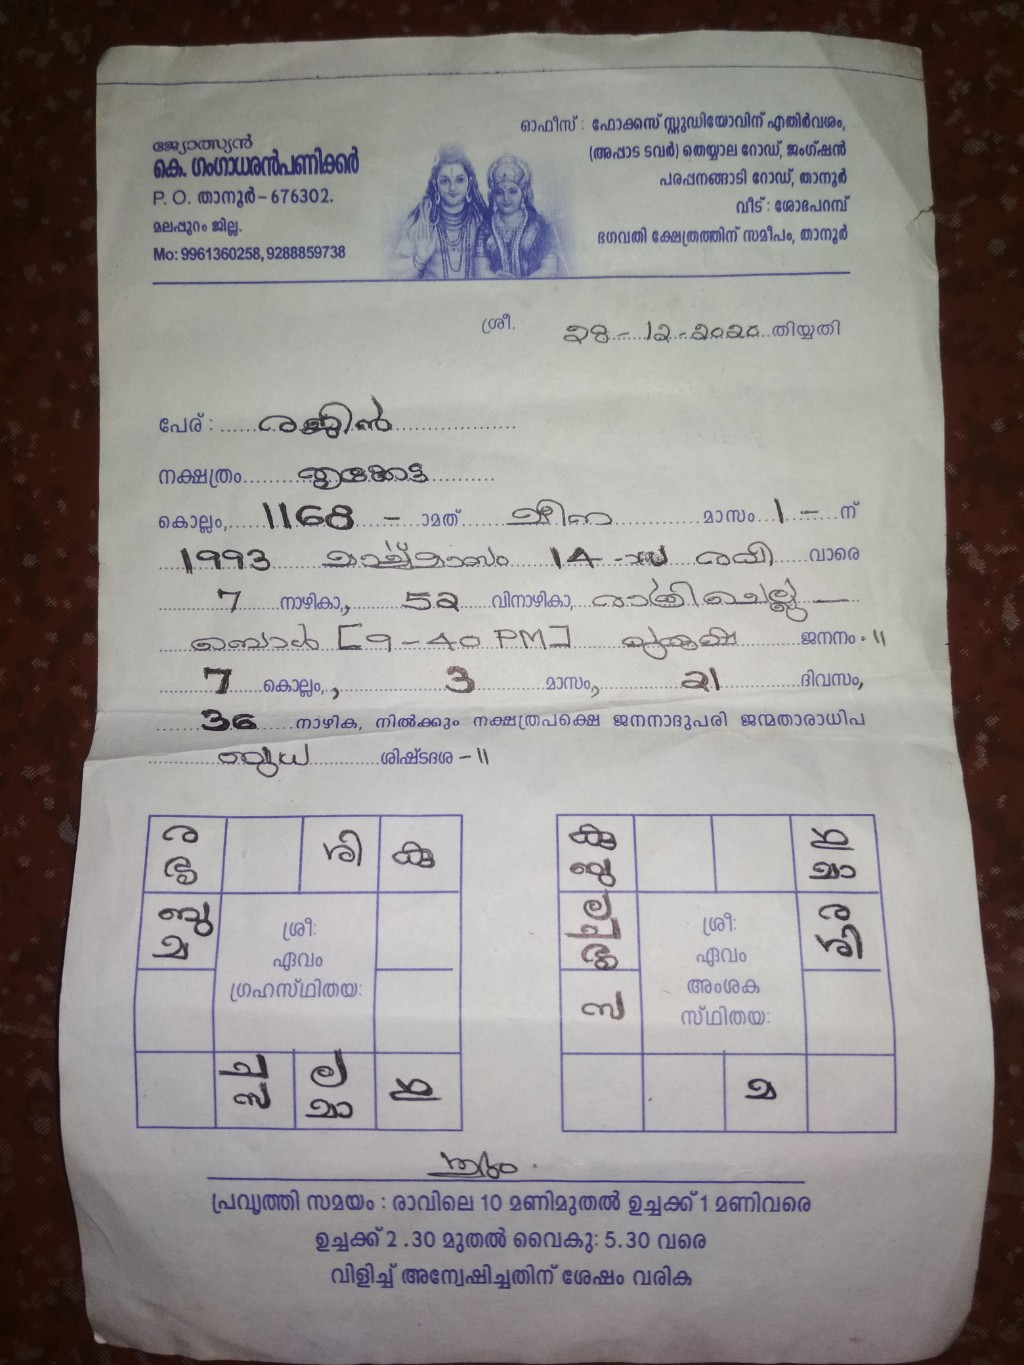 ജ്യോത്സ്യൻ
കെ. ഗംഗാധരൻപണിക്കർ
P. O. താനൂർ – 676302.
മലപ്പുറം ജില്ല.
Mo: 9961360258, 9288859738
ഓഫീസ് : ഫോക്കസ് സ്റ്റുഡിയോവിന് എതിർവശം,
(അപ്പാട ടവർ) തെയ്യാല റോഡ്, ജംഗ്ഷൻ
പരപ്പനങ്ങാടി റോഡ്, താനൂർ
വീട് : ശോഭപറമ്പ്
ഭഗവതി ക്ഷേത്രത്തിന് സമീപം, താനൂർ
ശ്രീ.
28-12-2020 തിയ്യതി
പേര് : രജിൻ
നക്ഷത്രം തൃക്കേട്ട
കൊല്ലം, 1168 - ാമത് മീന മാസം 1 - ന്
1993 മാർച്ച്മാസം 14 രവി വാരെ
7 നാഴികാ, 52 വിനാഴികാ, രാത്രിചെല്ലു
[9-40 PM] പുരുഷ ജനനം. 11
7 കൊല്ലം, 3 മാസം, 21 ദിവസം,
36 നാഴിക, നിൽക്കും നക്ഷത്രപക്ഷെ ജനനാദുപരി ജന്മതാരാധിപ
ബുധ ശിഷ്ടദശ – 11
ര ശി കു
ബു മ
ശ്രീ:
ഏവം
ഗ്രഹസ്ഥിതയ:
ച സ ല മാ ഗു
കു ബു ഗു മാ
ശ്രീ:
ഏവം
അംശക
സ്ഥിതയ:
സ
മ
ശുഭം.
പ്രവൃത്തി സമയം : രാവിലെ 10 മണിമുതൽ ഉച്ചക്ക് 1 മണിവരെ
ഉച്ചക്ക് 2 .30 മുതൽ വൈകു: 5.30 വരെ
വിളിച്ച് അന്വേഷിച്ചതിന് ശേഷം വരിക